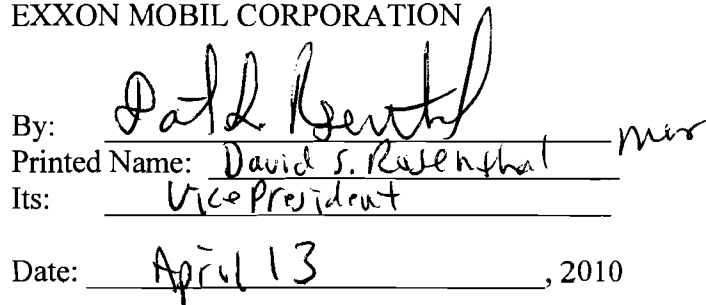 EXXON MOBIL CORPORATION
By:
Printed Name: David S. Rosenthal
Its: Vice President
Date: April 13, 2010